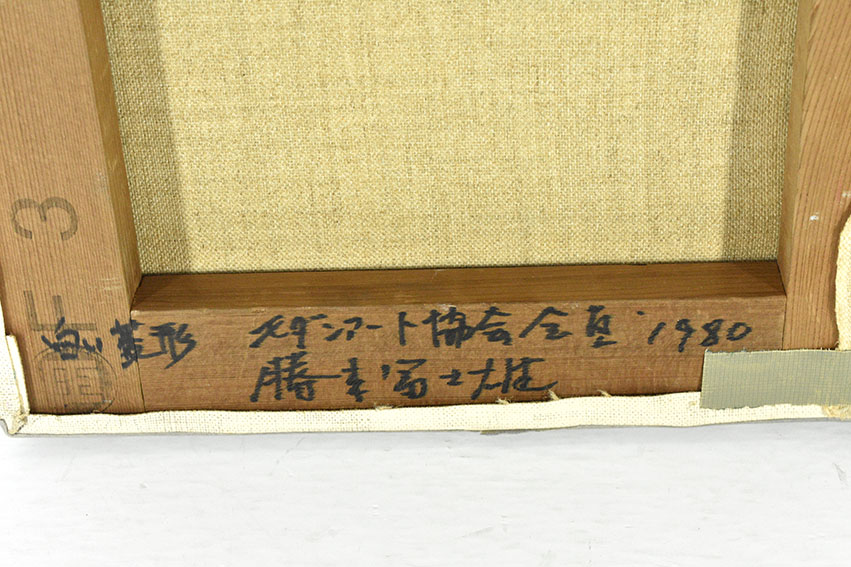 F3
白い菱形 モダンアート協会会員 '1980
勝本冨士雄